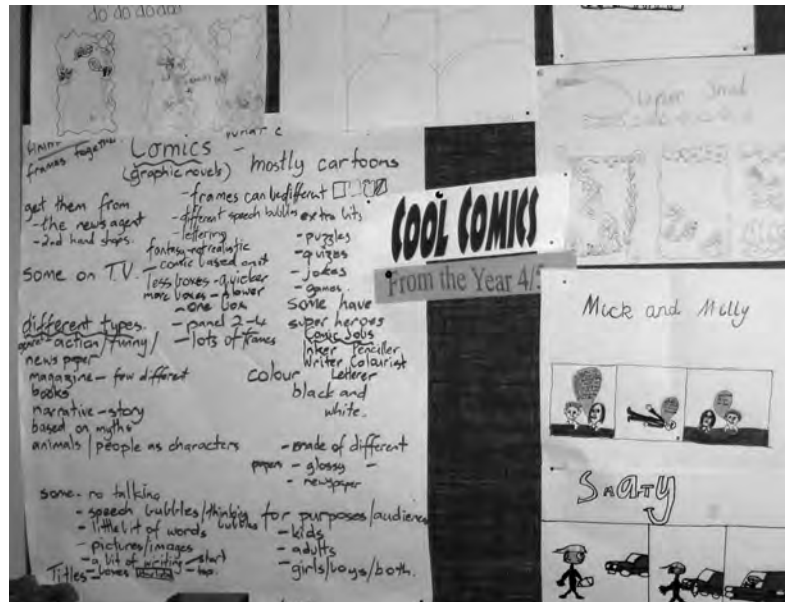 do do do da!
Comics
(graphic novels)
mostly cartoons
frames together
get them from
- the news agent
- 2nd hand shops.
- frames can be different
- different speech bubbles
- lettering
fantasy - not realistic
- comic based on it
Some on T.V.
less boxes - quicker
more boxes - slower
- one box
- panel 2-4
- lots of frames
extra bits
- puzzles
- quizes
- jokes
- games.
some have
super heroes
Comic Jobs
Inker Penciller
Writer Colourist
Letterer
different types.
action/funny/
news paper
magazine - few different
books
narrative - story
based on myths
animals/people as characters
colour
black and
white.
- made of different
papers - glossy -
- newspaper
some - no talking
- speech bubbles/thinking bubbles
- little bit of words
- pictures/images
- a bit of writing - start
Titles - boxes
for purposes/audience
- kids
- adults
- girls/boys/both.
COOL COMICS
From the Year 4/5
Mick and Milly
SMATY